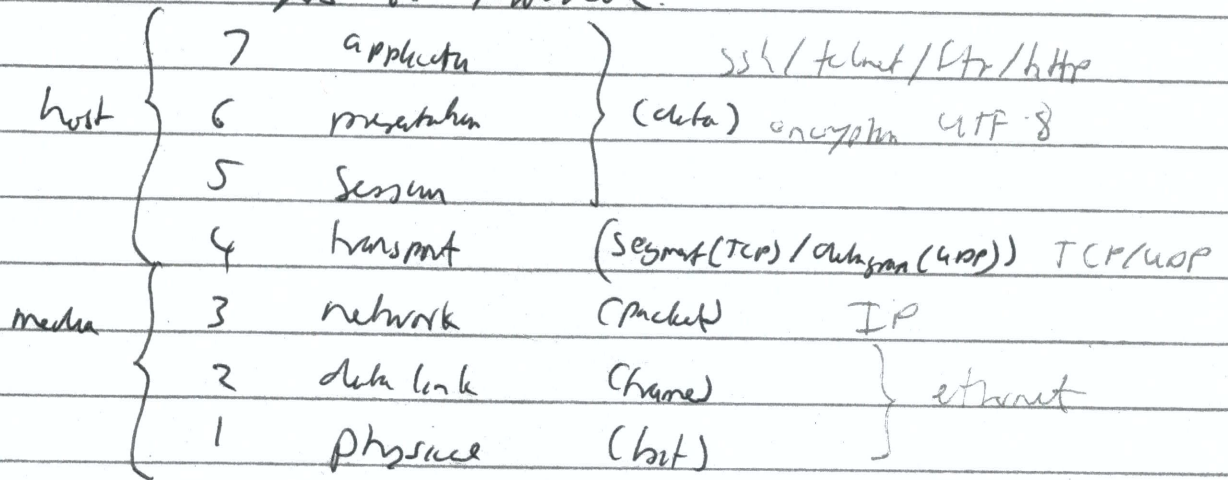 7 application ssh/telnet/ftp/http
host 6 presentation (data) encryption UTF-8
5 session
4 transport (segment(TCP)/datagram(UDP)) TCP/UDP
media 3 network (packet) IP
2 data link (frame) ethernet
1 physical (bit)